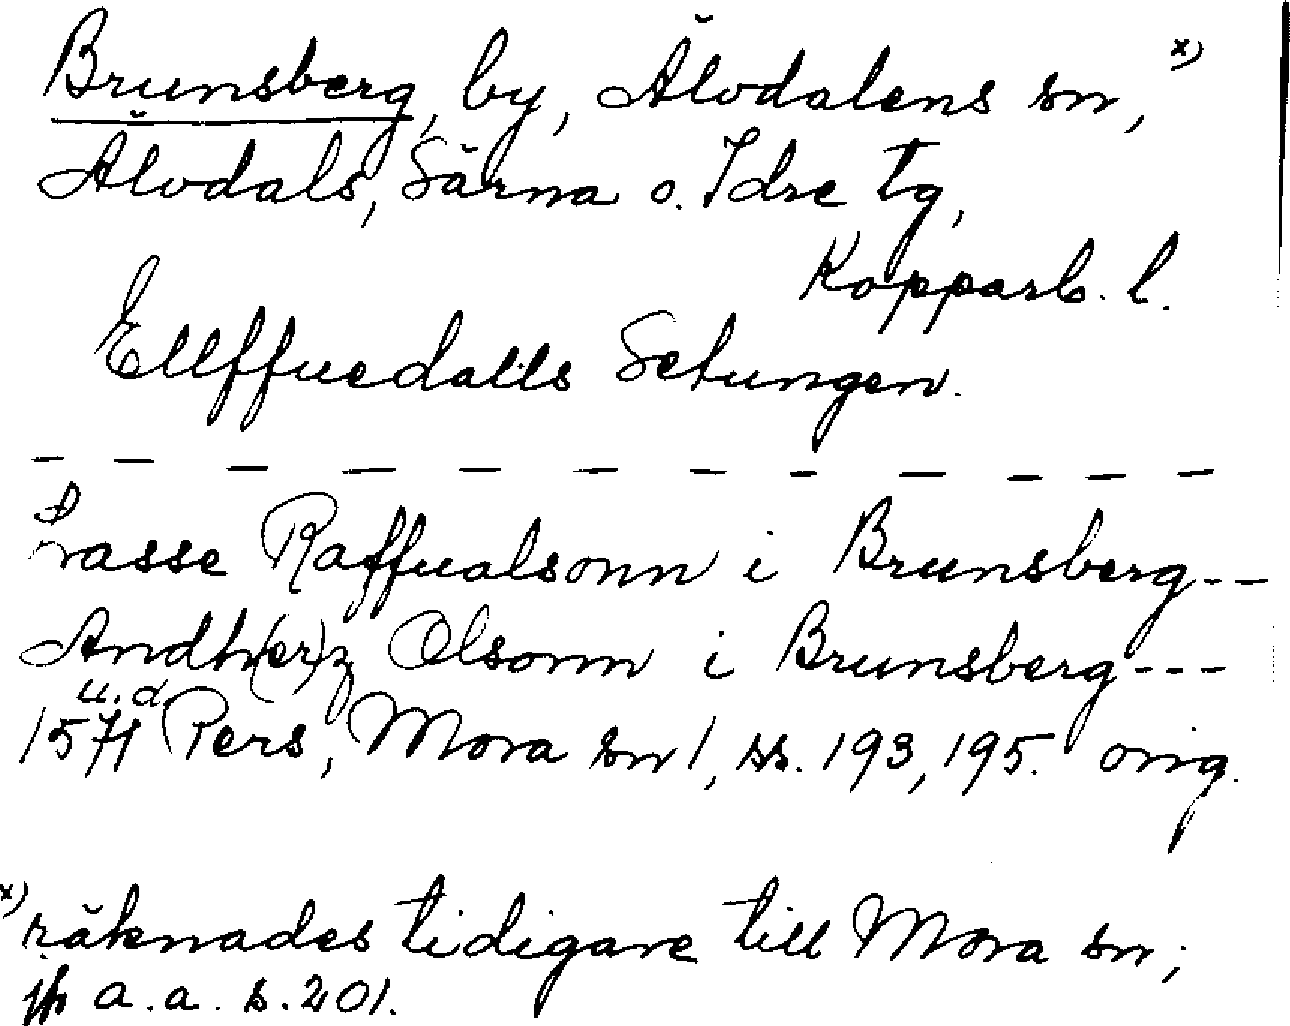 Brunsberg, by, Älvdalens sn, x)
Älvdals, Särna o. Idre tg,
Kopparb. l.
Ellffuedalls Setungen.
— — — — — — — — — — — —
Lasse Raffualsonn i Brunsberg --
Andh(er)z Olsonn i Brunsberg ---
u.d.
1571 Pers, Mora sn 1, ss. 193, 195. orig.
x) räknades tidigare till Mora sn;
jfr a.a. s. 201.